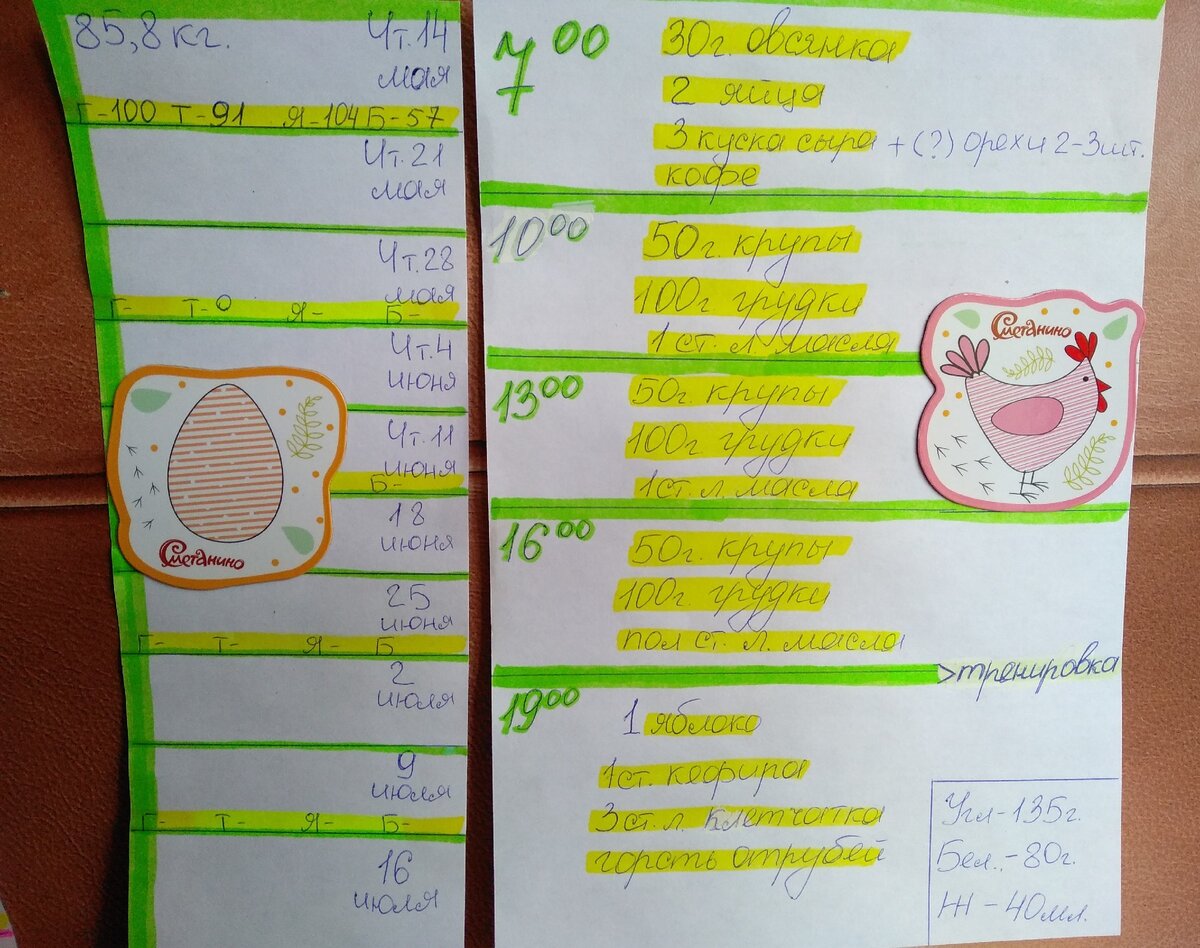 85,8 кг. Чт.14
мая
Г-100 Т-91 Я-104 Б-57
Чт.21
мая
Чт.28
мая
Г- Т-0 Я- Б-
Чт.4
июня
Чт.11
июня
Б-
18
июня
25
июня
Г- Т- Я- Б
2
июля
9
июля
Г- Т- Я- Б-
16
июля
Сметанино
7 00
30г. овсянка
2 яйца
3 куска сыра + (?) орехи 2-3шт.
кофе
10 00
50г. крупы
100г. грудки
1 ст. л. масла
13 00
50г. крупы
100г грудки
1ст л. масла
16 00
50г. крупы
100г. грудки
пол ст. л. масла
>тренировка
19 00
1 яблоко
1ст. кефира
3 ст. л. клетчатка
горсть отрубей
Сметанино
Угл-135г.
Бел.-80г.
Ж-40мл.